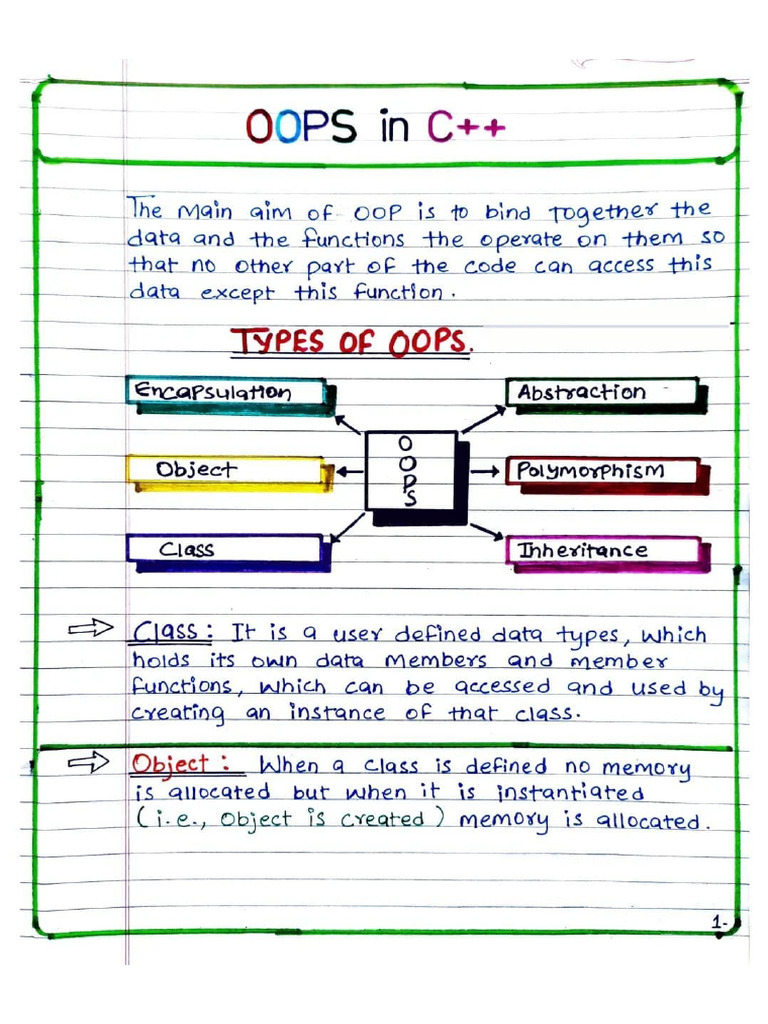 OOPS in C++
The main aim of OOP is to bind together the
data and the functions the operate on them so
that no other part of the code can access this
data except this function.
TYPES OF OOPS.
Encapsulation
Abstraction
OOPS
Object
Polymorphism
Class
Inheritance
⇒ Class: It is a user defined data types, which
holds its own data members and member
functions, which can be accessed and used by
creating an instance of that class.
⇒ Object: When a class is defined no memory
is allocated but when it is instantiated
(i.e., object is created) memory is allocated.
1-